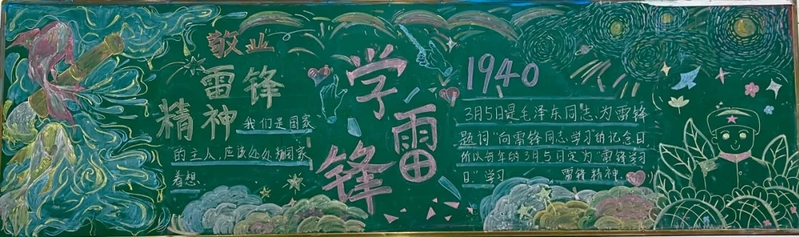 敬业
雷锋
精神
我们是国家
的主人,应该处处为国家
着想.
学
雷
锋
1940
3月5日是毛泽东同志、为雷锋
题词“向雷锋同志学习”的记念日
所以每年的3月5日定为“雷锋学习
日”学习 雷锋精神